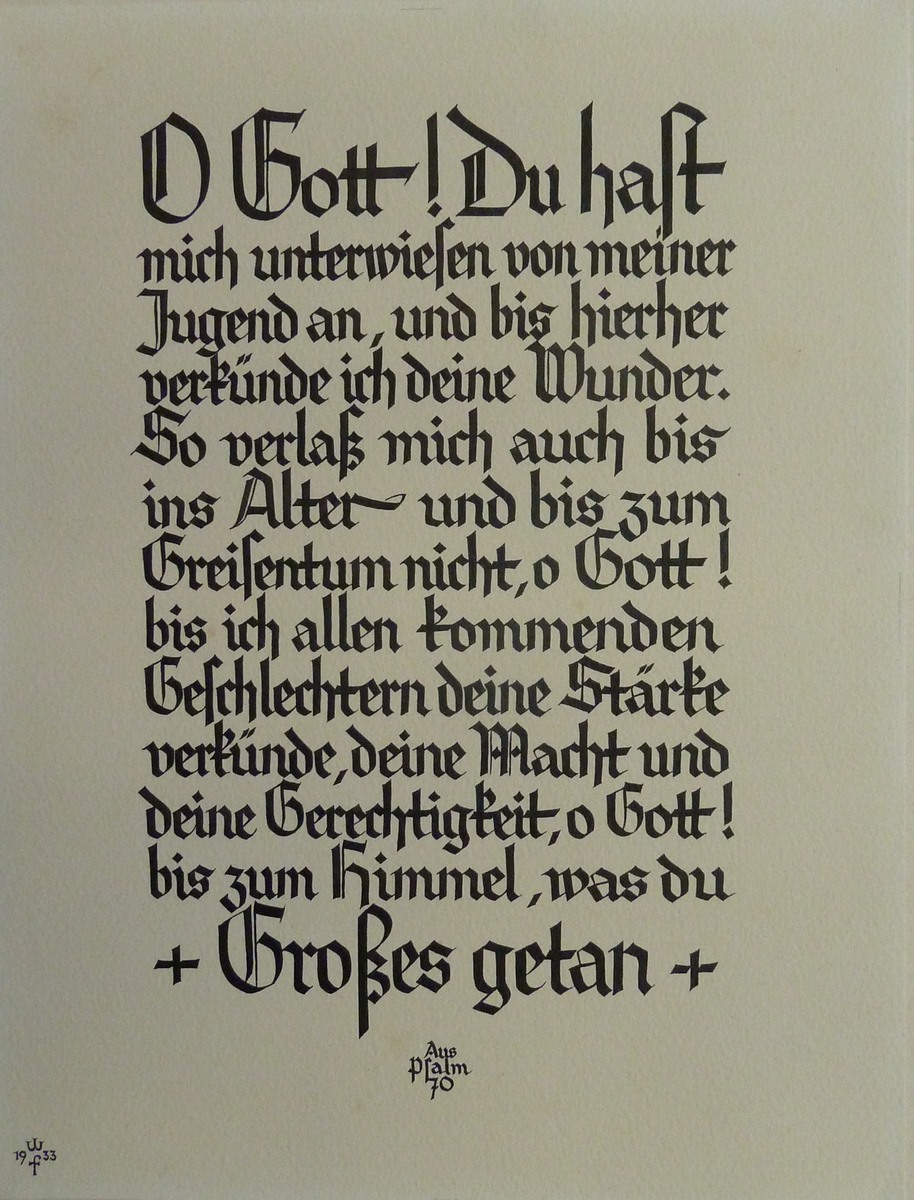 O Gott! Du haſt
mich unterwieſen von meiner
Jugend an, und bis hierher
verkünde ich deine Wunder.
So verlaß mich auch bis
ins Alter und bis zum
Greiſentum nicht, o Gott!
bis ich allen kommenden
Geſchlechtern deine Stärke
verkünde, deine Macht und
deine Gerechtigkeit, o Gott!
bis zum Himmel, was du
+ Großes getan +
Aus
Pſalm
70
W
19 33
f